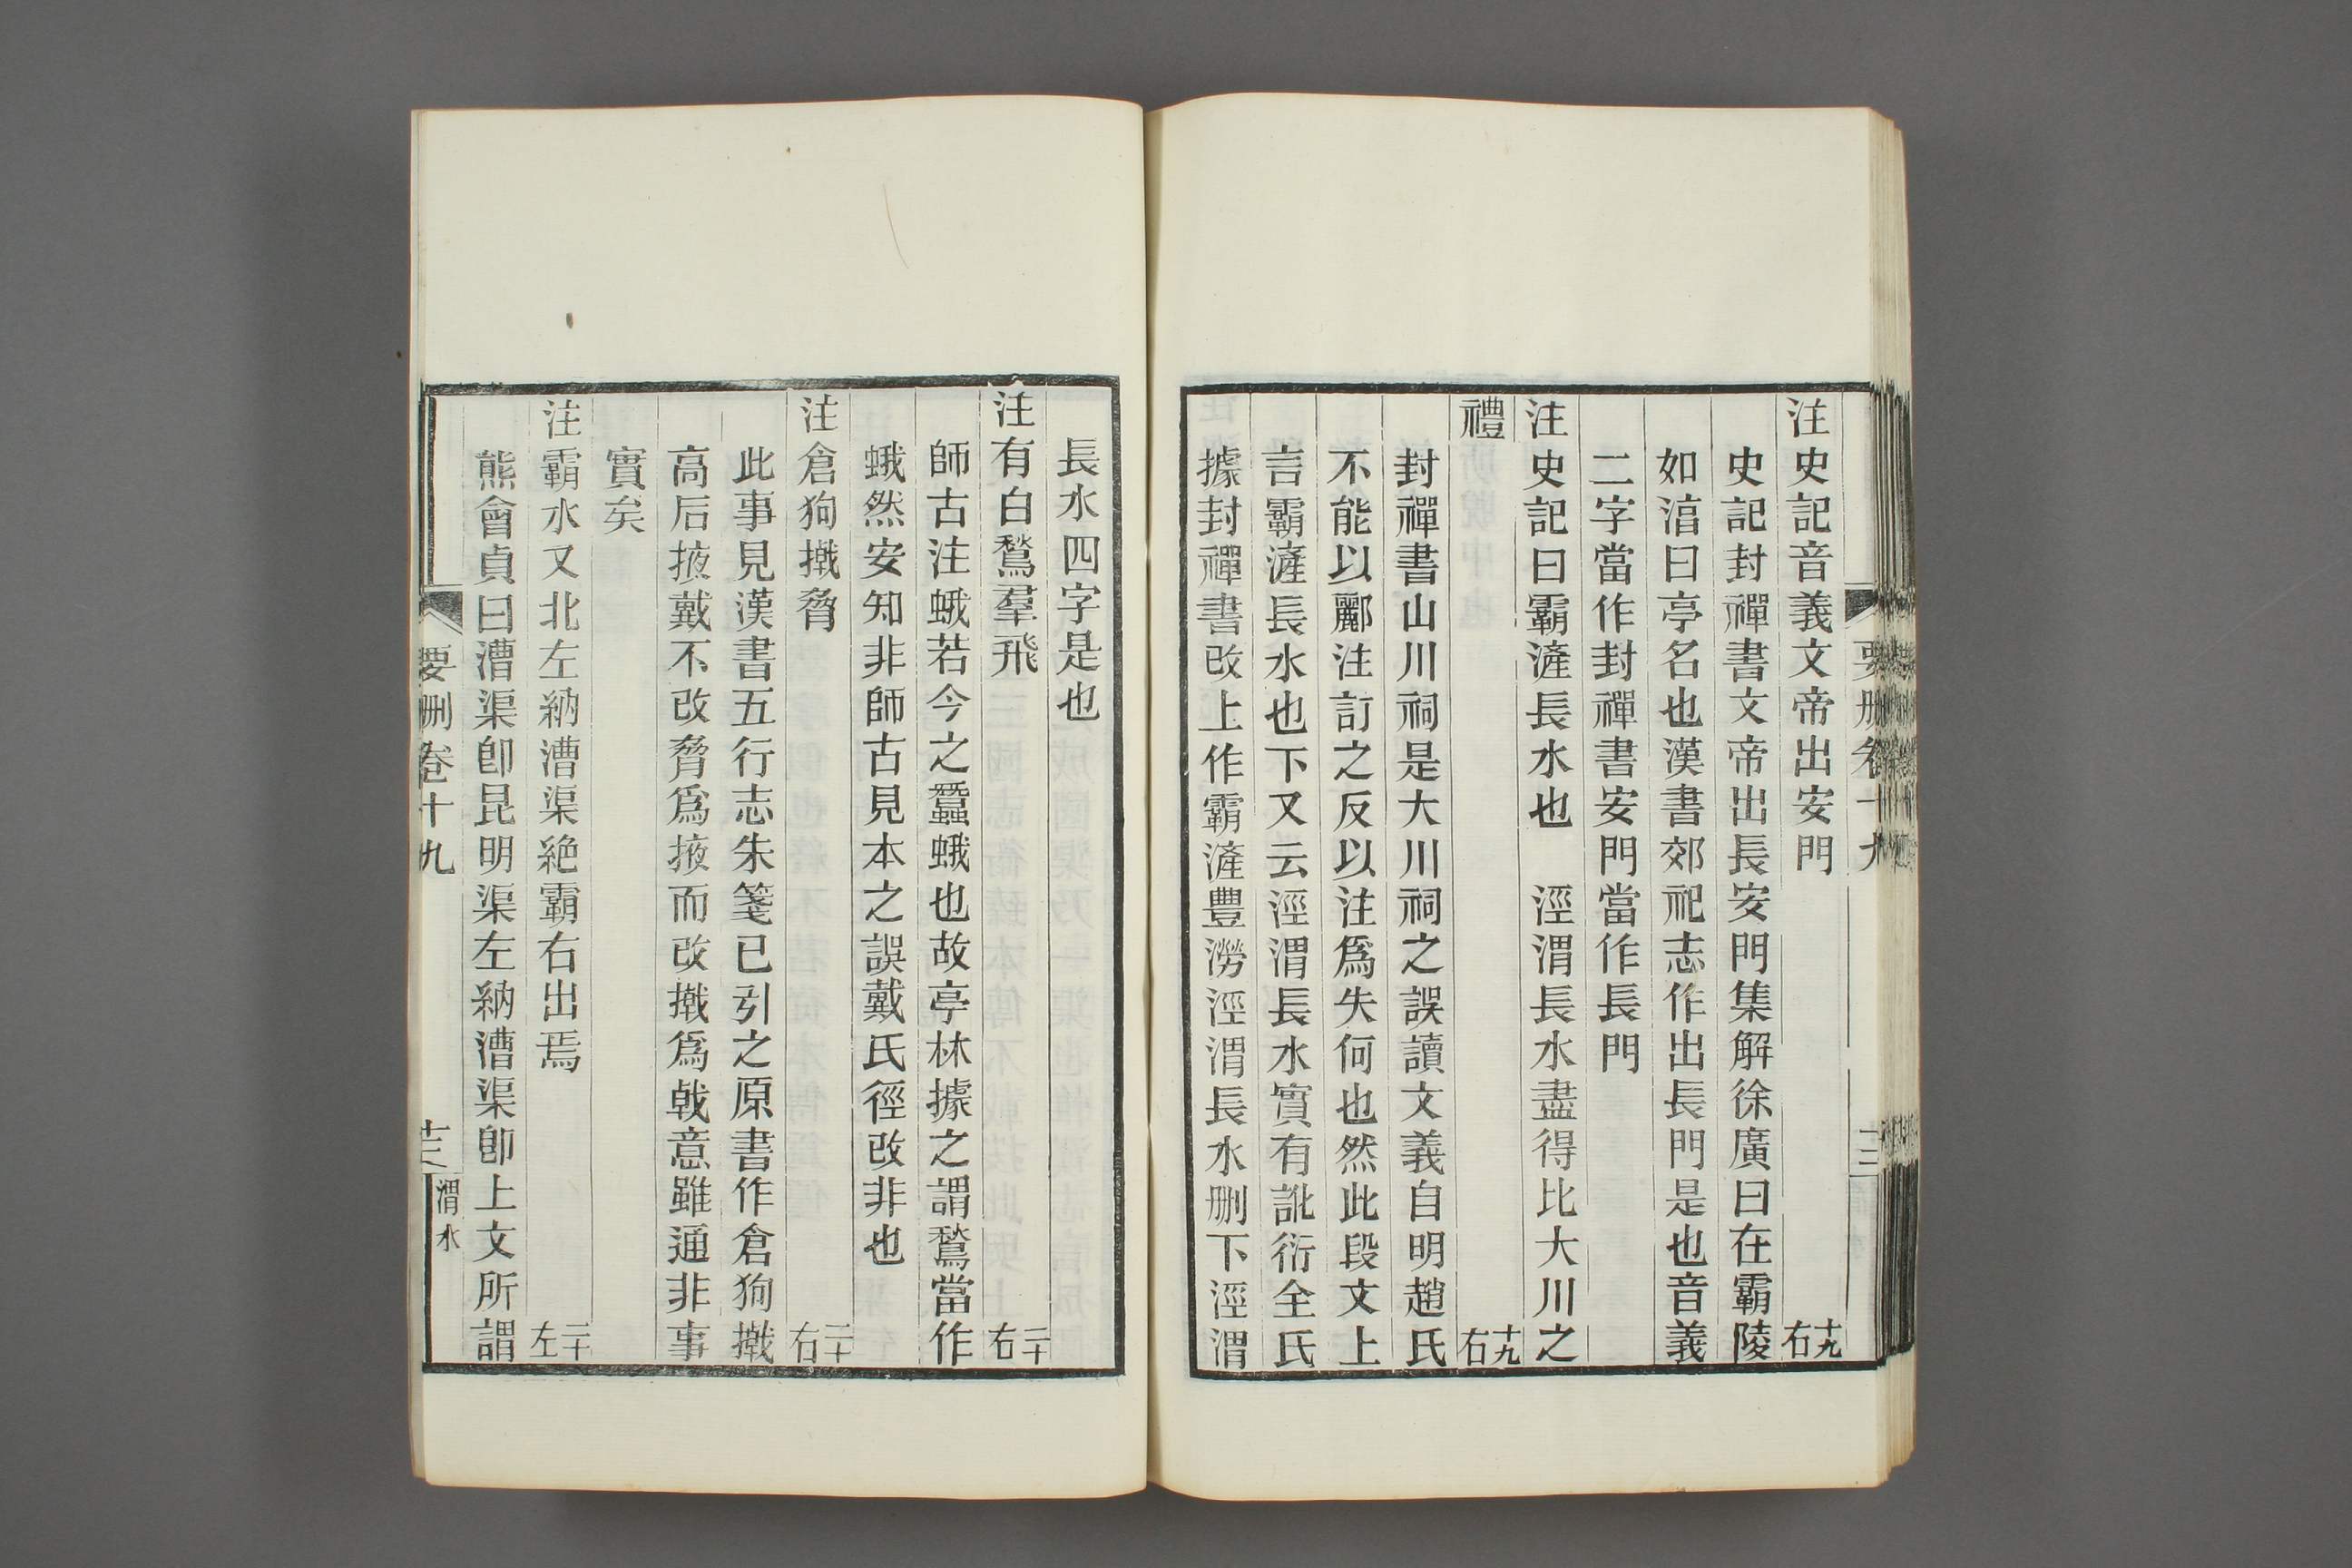 要刪卷十九
十三
注史記音義文帝出安門 十九右
史記封禪書文帝出長安門集解徐廣曰在霸陵
如湻曰亭名也漢書郊祀志作出長門是也音義
二字當作封禪書安門當作長門
注史記曰霸滻長水也 涇渭長水盡得比大川之
禮 十九右
封禪書山川祠是大川祠之誤讀文義自明趙氏
不能以酈注訂之反以注爲失何也然此段文上
言霸滻長水也下又云涇渭長水實有訛衍全氏
據封禪書改上作霸滻豐澇涇渭長水刪下涇渭
長水四字是也
注有白鶖羣飛 二十右
師古注蛾若今之蠶蛾也故亭林據之謂鶖當作
蛾然安知非師古見本之誤戴氏徑改非也
注倉狗撠脅 二十右
此事見漢書五行志朱箋已引之原書作倉狗撠
高后掖戴不改脅爲掖而改撠爲戟意雖通非事
實矣
注霸水又北左納漕渠絶霸右出焉 二十左
熊會貞曰漕渠卽昆明渠左納漕渠卽上文所謂
要刪卷十九
渭水